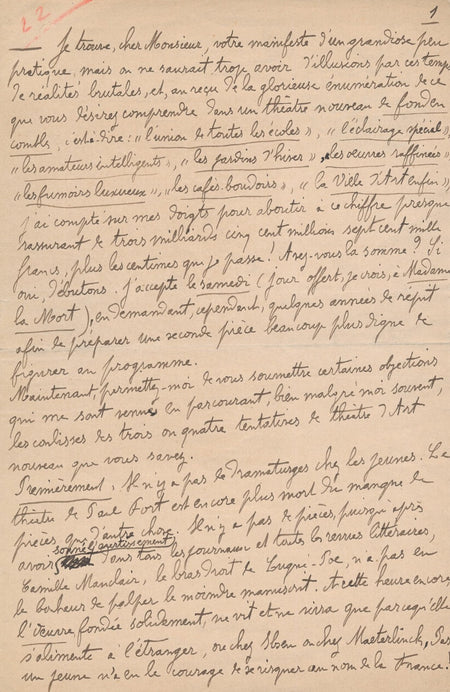 22
1
— Je trouve, cher Monsieur, votre manifeste d'un grandiose peu
pratique, mais on ne saurait trop avoir d'illusions par ces temps
de réalités brutales, et, au reçu de la glorieuse énumération de ce
que vous désirez comprendre dans un théâtre nouveau de fond en
comble, c'est à dire : "l'union de toutes les écoles", "l'éclairage spécial",
"les amateurs intelligents", "les jardins d'hiver", "les œuvres raffinées"
"les fumoirs luxueux", "les cafés-boudoirs", "la Ville d'Art enfin",
j'ai compté sur mes doigts pour aboutir à ce chiffre presque
rassurant de trois milliards cinq cent millions sept cent mille
francs, plus les centimes que je passe ! Avez-vous la somme ? Si
oui, débutons. J'accepte le samedi (jour offert, je crois, à Madame
la Mort), en demandant, cependant, quelques années de répit
afin de préparer une seconde pièce beaucoup plus digne de
figurer au programme.
Maintenant, permettez-moi de vous soumettre certaines objections
qui me sont venues en parcourant, bien malgré moi souvent,
les coulisses des trois ou quatre tentatives de théâtre d'Art
nouveau que vous savez.
Premièrement, Il n'y a pas de dramaturges chez les jeunes. Le
théâtre de Paul Fort est encore plus mort du manque de
pièces que d'autre chose. Il n'y a pas de pièces, puisqu'après
avoir sonné l'avertissement dans tous les journaux et toutes les revues littéraires,
Camille Mauclair, le bras droit de Lugné-Poe, n'a pas eu
le bonheur de palper le moindre manuscrit. A cette heure encore,
l'Œuvre fondée solidement, ne vit et ne vivra que parce qu'elle
s'alimente à l'étranger, ou chez Ibsen ou chez Maeterlinck. Pas
un jeune n'a eu le courage de se risquer au nom de la France !